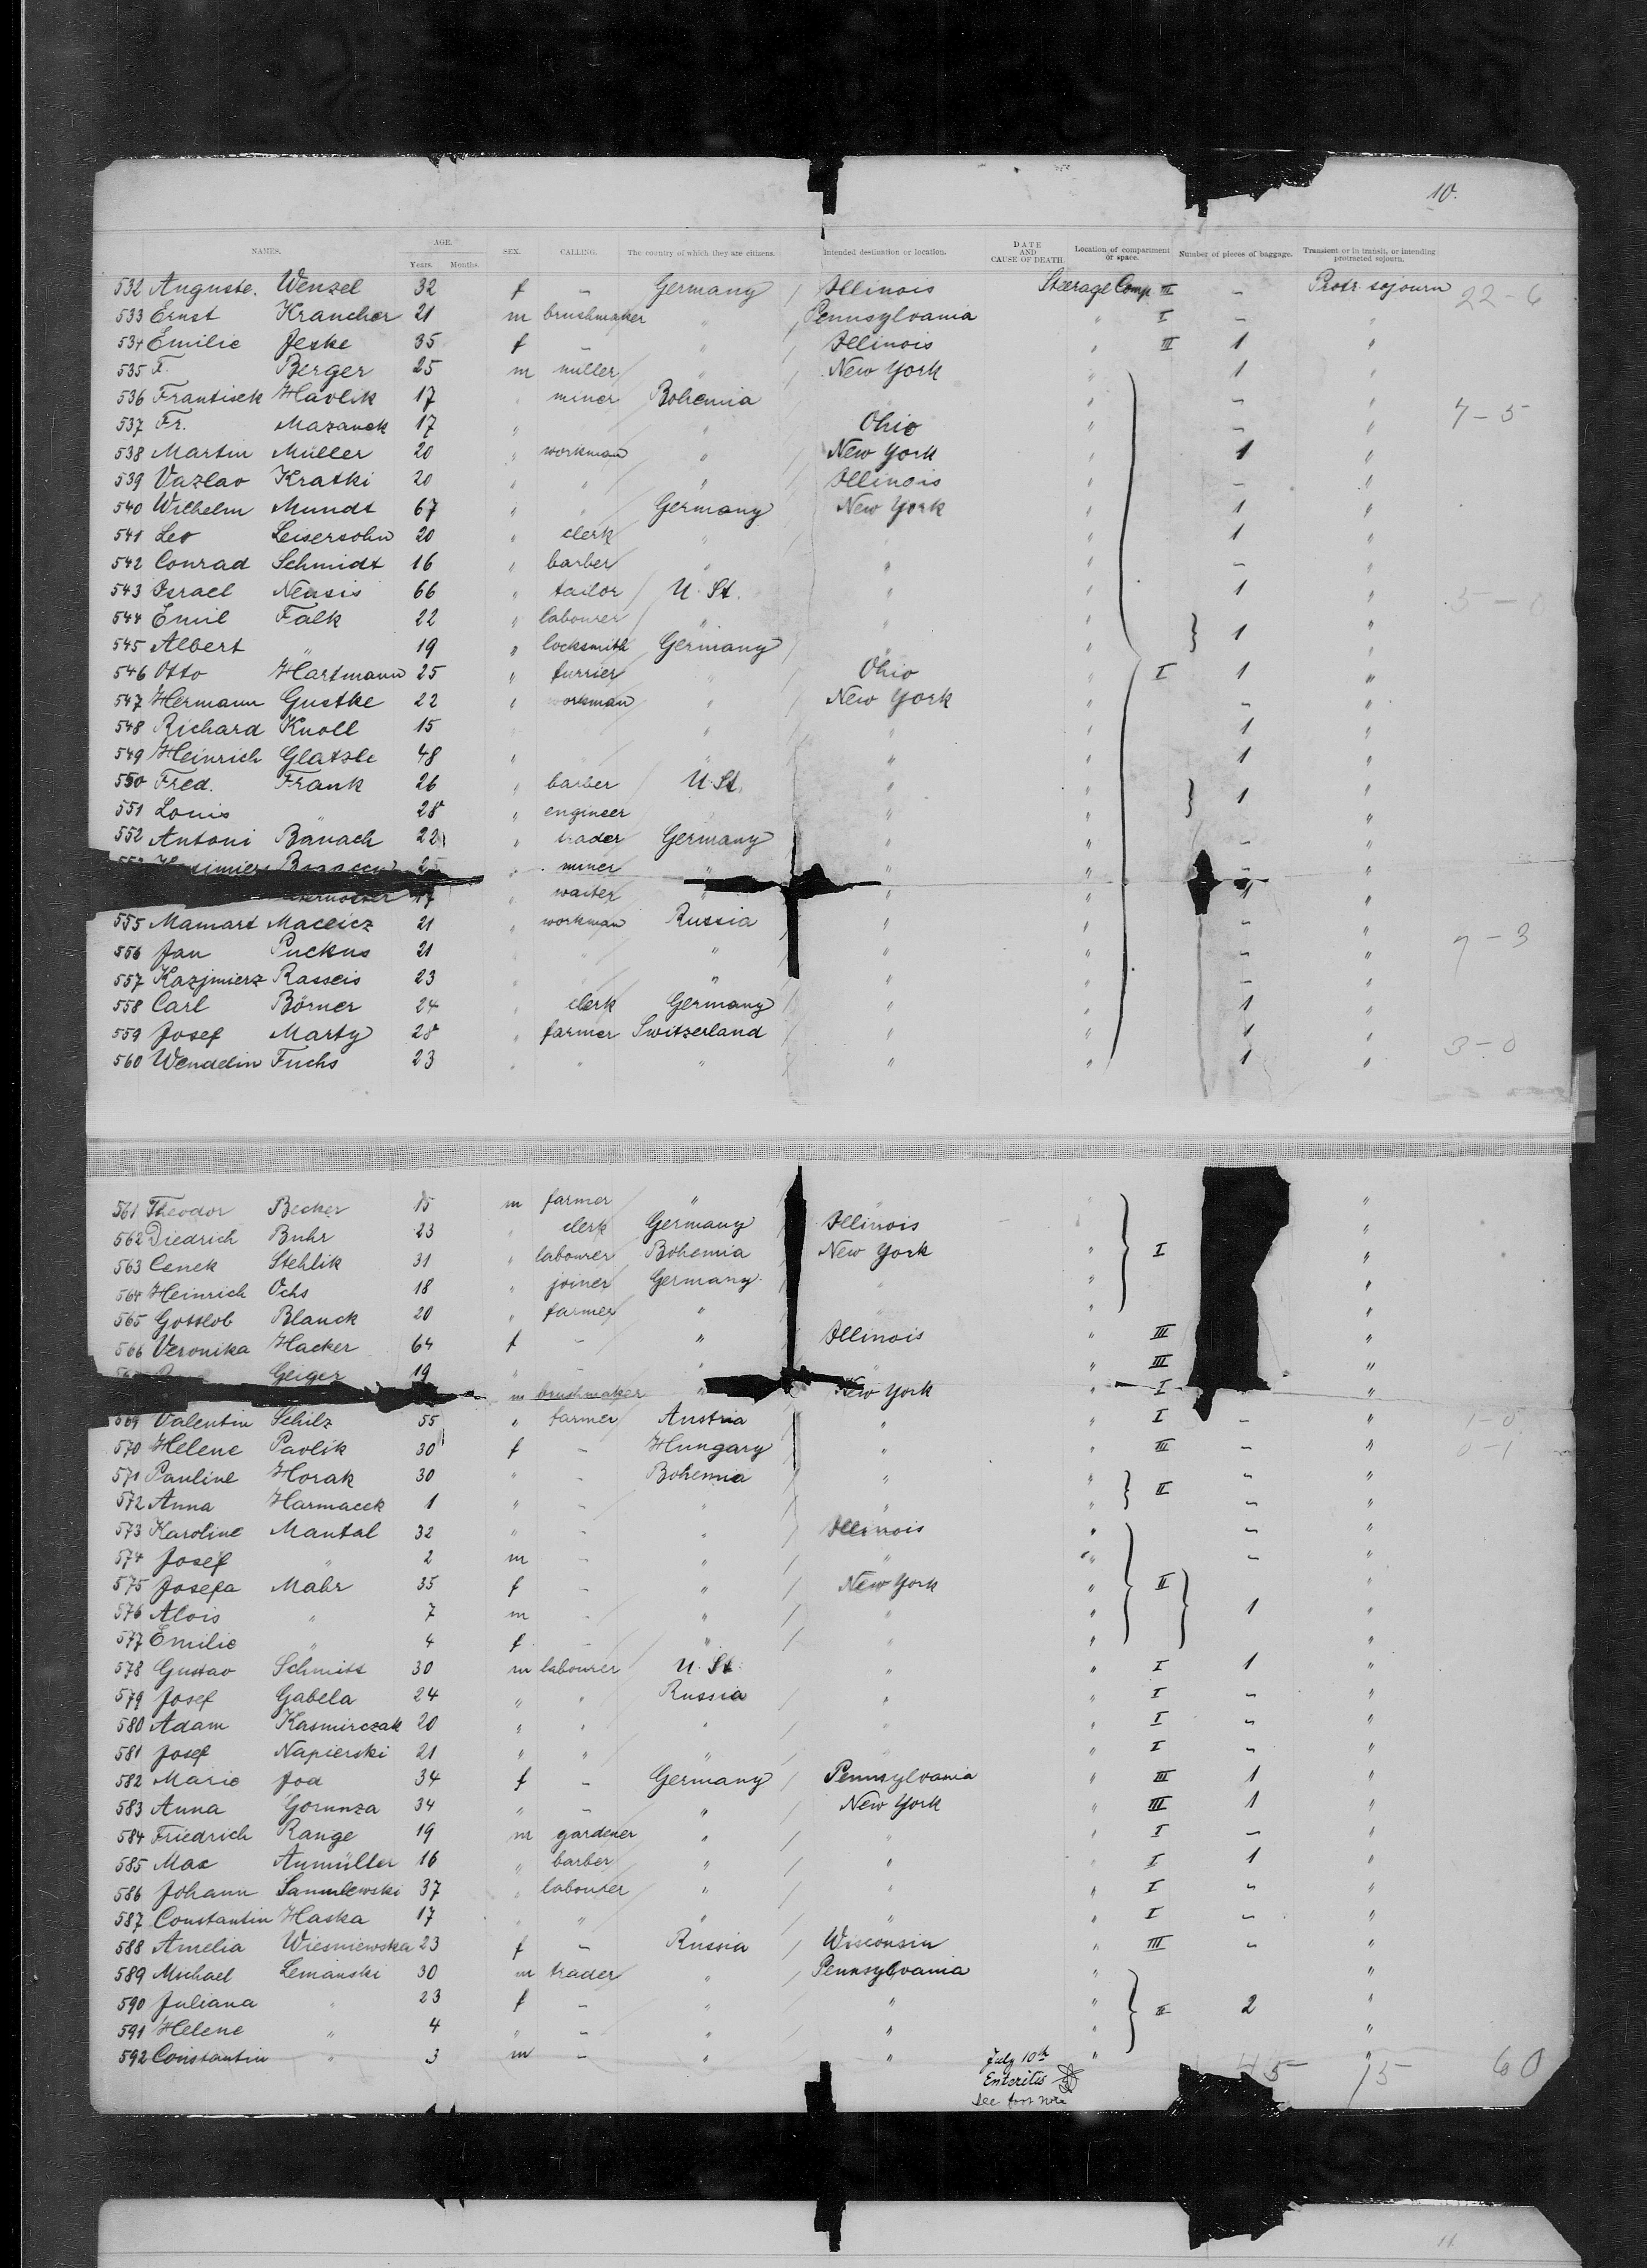 10.
NAMES. AGE. Years. Months. SEX. CALLING. The country of which they are citizens. Intended destination or location. DATE AND CAUSE OF DEATH. Location of compartment or space. Number of pieces of baggage. Transient or in transit, or intending protracted sojourn.
532 Auguste. Wenzel 32 f – Germany / Illinois Steerage Comp III – Protr. sojourn 22-6
533 Ernst Krancher 21 m brushmaker " / Pennsylvania " I – "
534 Emilie Jeske 35 f – " / Illinois " III 1 "
535 F. Berger 25 m müller " / New York " 1 "
536 Frantisek Havlik 17 " miner Bohemia " " – "
537 Fr. Mazanek 17 " " " Ohio " – " 7-5
538 Martin Müller 20 " workman " / New York " 1 "
539 Vazlav Kratki 20 " " " / Illinois " – "
540 Wilhelm Mundt 67 " " Germany / New York " 1 "
541 Leo Leisersohn 20 " clerk " / " " 1 "
542 Conrad Schmidt 16 " barber " / " " – "
543 Israel Neasis 66 " tailor / U. St. " " 1 " 5-0
544 Emil Falk 22 " labourer " " " } 1 "
545 Albert " 19 " locksmith Germany / " " "
546 Otto Hartmann 25 " furrier " / Ohio " I 1 "
547 Hermann Gustke 22 " workman " / New York " – "
548 Richard Knoll 15 " " " / " " 1 "
549 Heinrich Glatzle 48 " " " / " " 1 "
550 Fred. Frank 26 " barber / U. St. " " } 1 "
551 Louis " 28 " engineer " " " "
552 Antoni Banach 22 " trader Germany / " " – "
25 " miner " " " – "
17 " waiter " " " "
555 Mamart Maceicz 21 " workman Russia / " " – "
556 Jan Puckus 21 " " " " " – " 7-3
557 Kazjmierz Rasseis 23 " " " " " – "
558 Carl Börner 24 " clerk Germany / " " 1 "
559 Josef Marty 28 " farmer Switzerland / " " 1 "
560 Wendelin Fuchs 23 " " " / " " 1 " 3-0
561 Theodor Becker 15 m farmer " / " " "
562 Diedrich Buhr 23 " clerk Germany / Illinois " "
563 Cenek Stehlik 31 " labourer Bohemia / New York " I "
564 Heinrich Ochs 18 " joiner Germany / " " "
565 Gottlob Blanck 20 " farmer " " " "
566 Veronika Hacker 64 f – " Illinois " III "
Geiger 19 " – " " " III "
m brushmaker " New York " I "
569 Valentin Schilz 55 " farmer Austria / " " I – " 1-0
570 Helene Pavlik 30 f – Hungary / " " III – " 0-1
571 Pauline Horak 30 " – Bohemia / " " } II – "
572 Anna Harmacek 1 " – " / " " – "
573 Karoline Mantal 32 " – " / Illinois " – "
574 Josef " 2 m – " / " " – "
575 Josefa Mahr 35 f – " / New York " II "
576 Alois " 7 m – " / " " } 1 "
577 Emilie " 4 f – " / " " "
578 Gustav Schmitt 30 m labourer U. St. " " I 1 "
579 Josef Gabela 24 " " Russia / " " I – "
580 Adam Kasmirczak 20 " " " / " " I – "
581 Josef Napierski 21 " " " / " " I – "
582 Marie Joa 34 f – Germany / Pennsylvania " III 1 "
583 Anna Gorunza 34 " – " / New York " III 1 "
584 Friedrich Range 19 m gardener " / " " I – "
585 Max Aumüller 16 " barber " / " " I 1 "
586 Johann Samulewski 37 " labourer " / " " I – "
587 Constantin Haska 17 " " " / " " I – "
588 Amelia Wiesniewska 23 f – Russia / Wisconsin " III – "
589 Michael Lemanski 30 m trader " / Pennsylvania " "
590 Juliana " 23 f – " / " " } II 2 "
591 Helene " 4 " – " / " " "
592 Constantin " 3 m – " / " July 10th Enteritis See foot note " "
45 15 60
11